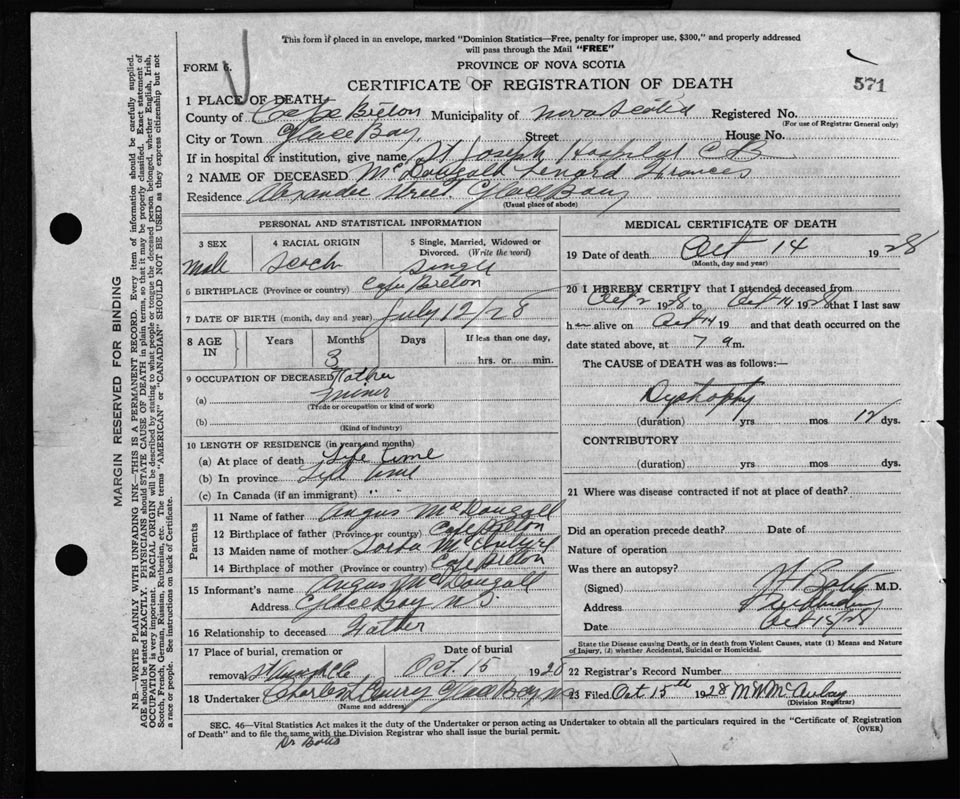 This form if placed in an envelope, marked "Dominion Statistics—Free, penalty for improper use, $300," and properly addressed
will pass through the Mail "FREE"
FORM 6.
PROVINCE OF NOVA SCOTIA
CERTIFICATE OF REGISTRATION OF DEATH
571
1 PLACE OF DEATH
County of Cape Breton Municipality of Nova Scotia Registered No.
(For use of Registrar General only)
City or Town Glace Bay Street House No.
If in hospital or institution, give name St Joseph Hospital C B
2 NAME OF DECEASED McDougall Lenard Frances
Residence Alexander Street Glace Bay
(Usual place of abode)
PERSONAL AND STATISTICAL INFORMATION
3 SEX 4 RACIAL ORIGIN 5 Single, Married, Widowed or Divorced. (Write the word)
Male Scoch Single
6 BIRTHPLACE (Province or country) Cape Breton
7 DATE OF BIRTH (month, day and year) July 12/28
8 AGE IN Years Months Days If less than one day,
3 hrs. or min.
9 OCCUPATION OF DECEASED Father
(a) Miner
(Trade or occupation or kind of work)
(b)
(Kind of industry)
10 LENGTH OF RESIDENCE (in years and months)
(a) At place of death Life time
(b) In province Life time
(c) In Canada (if an immigrant) " "
Parents
11 Name of father Angus McDougall
12 Birthplace of father (Province or country) Cape Breton
13 Maiden name of mother
14 Birthplace of mother (Province or country) Cape Breton
15 Informant's name Angus McDougall
Address Glace Bay N S
16 Relationship to deceased Father
17 Place of burial, cremation or Date of burial
removal Oct 15 1928
18 Undertaker Charles Glace Bay N S
(Name and address)
MEDICAL CERTIFICATE OF DEATH
19 Date of death Oct 14 1928
(Month, day and year)
20 I HEREBY CERTIFY that I attended deceased from
Oct 2 1928 to Oct 14 1928 that I last saw
h m alive on Oct 14 19 and that death occurred on
date stated above, at 7 a m.
The CAUSE of DEATH was as follows:—
Dystrophy
(duration) yrs mos 12 dys.
CONTRIBUTORY
(duration) yrs mos dys.
21 Where was disease contracted if not at place of death?
Did an operation precede death? Date of
Nature of operation
Was there an autopsy?
(Signed) M.D.
Address
Date Oct 15/28
State the Disease causing Death, or in death from Violent Causes, state (1) Means and Nature
of Injury, (2) whether Accidental, Suicidal or Homicidal.
22 Registrar's Record Number
23 Filed Oct 15th 1928
(Division Registrar)
SEC. 46—Vital Statistics Act makes it the duty of the Undertaker or person acting as Undertaker to obtain all the particulars required in the "Certificate of Registration
of Death" and to file the same with the Division Registrar who shall issue the burial permit.
(OVER)
MARGIN RESERVED FOR BINDING
N.B.—WRITE PLAINLY WITH UNFADING INK—THIS IS A PERMANENT RECORD. Every item of information should be carefully supplied.
AGE should be stated EXACTLY. PHYSICIANS should STATE CAUSE OF DEATH in plain terms, so that it may be properly classified. Exact statement of
OCCUPATION is very important. RACIAL ORIGIN will be described by stating to what people or tongue the deceased person belonged, whether English, Irish,
Scotch, French, German, Russian, Ruthenian, etc. The terms "AMERICAN" or "CANADIAN" SHOULD NOT BE USED as they express citizenship but not
a race or people. See instructions on back of Certificate.